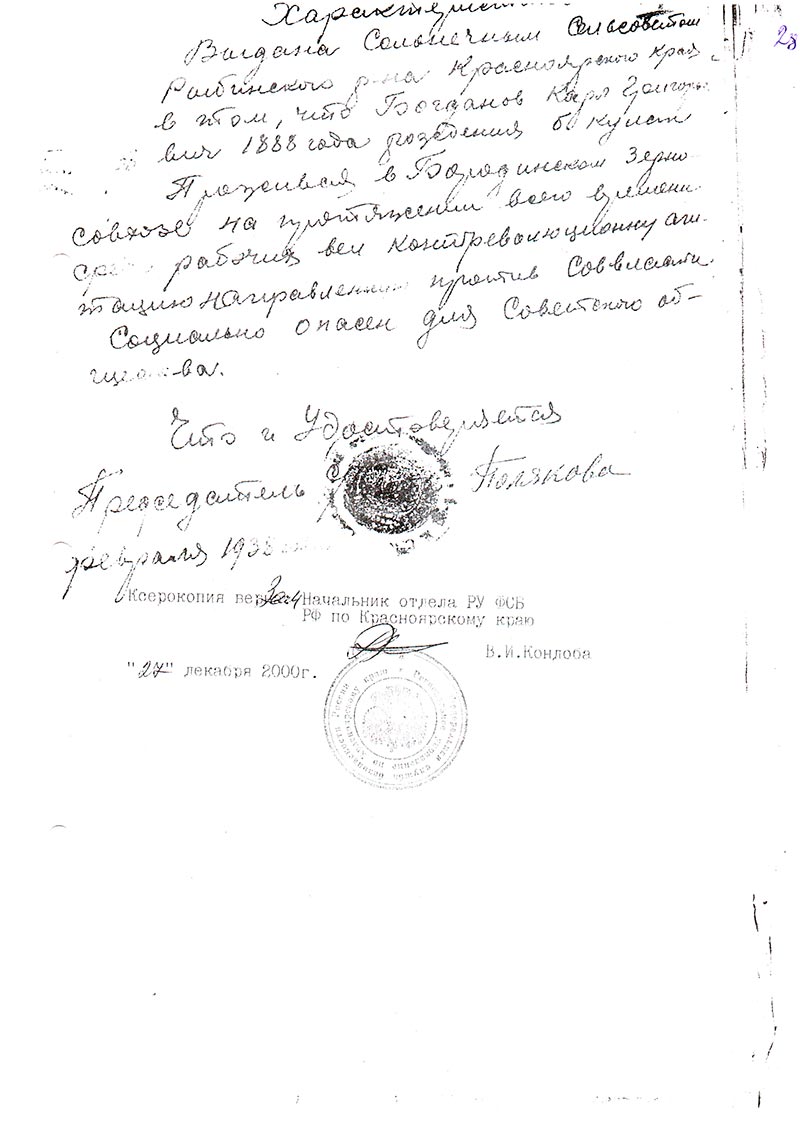 Характерист
28
Выдана Солонечным Сельсоветом
Рыбинского р-на Красноярского края
в том, что Богданов Карл Григорье
вич 1888 года рождения б кулак
Проживая в Бородинском Зерно
совхозе на протяжении всего времени
сре рабочих вел контрреволюционну аги
тацию направленную против Соввласти.
Социально опасен для Советского об-
ще ва.
Что и Удостоверяется
Председатель Полякова
февраля 1938
Ксерокопия верна Зам Начальник отдела РУ ФСБ
РФ по Красноярскому краю
В.И.Конлоба
"27" декабря 2000г.